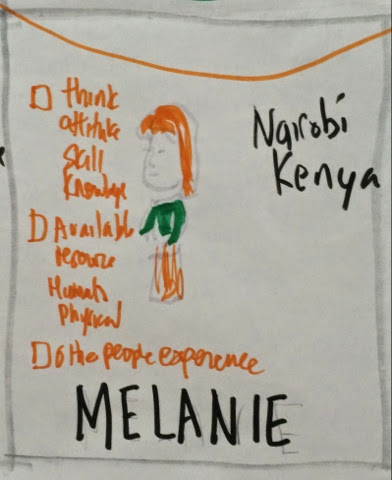 think
attitude
Skill
Knowledge
Available
resource
Human
physical
Othe people experence
Nairobi
Kenya
MELANIE